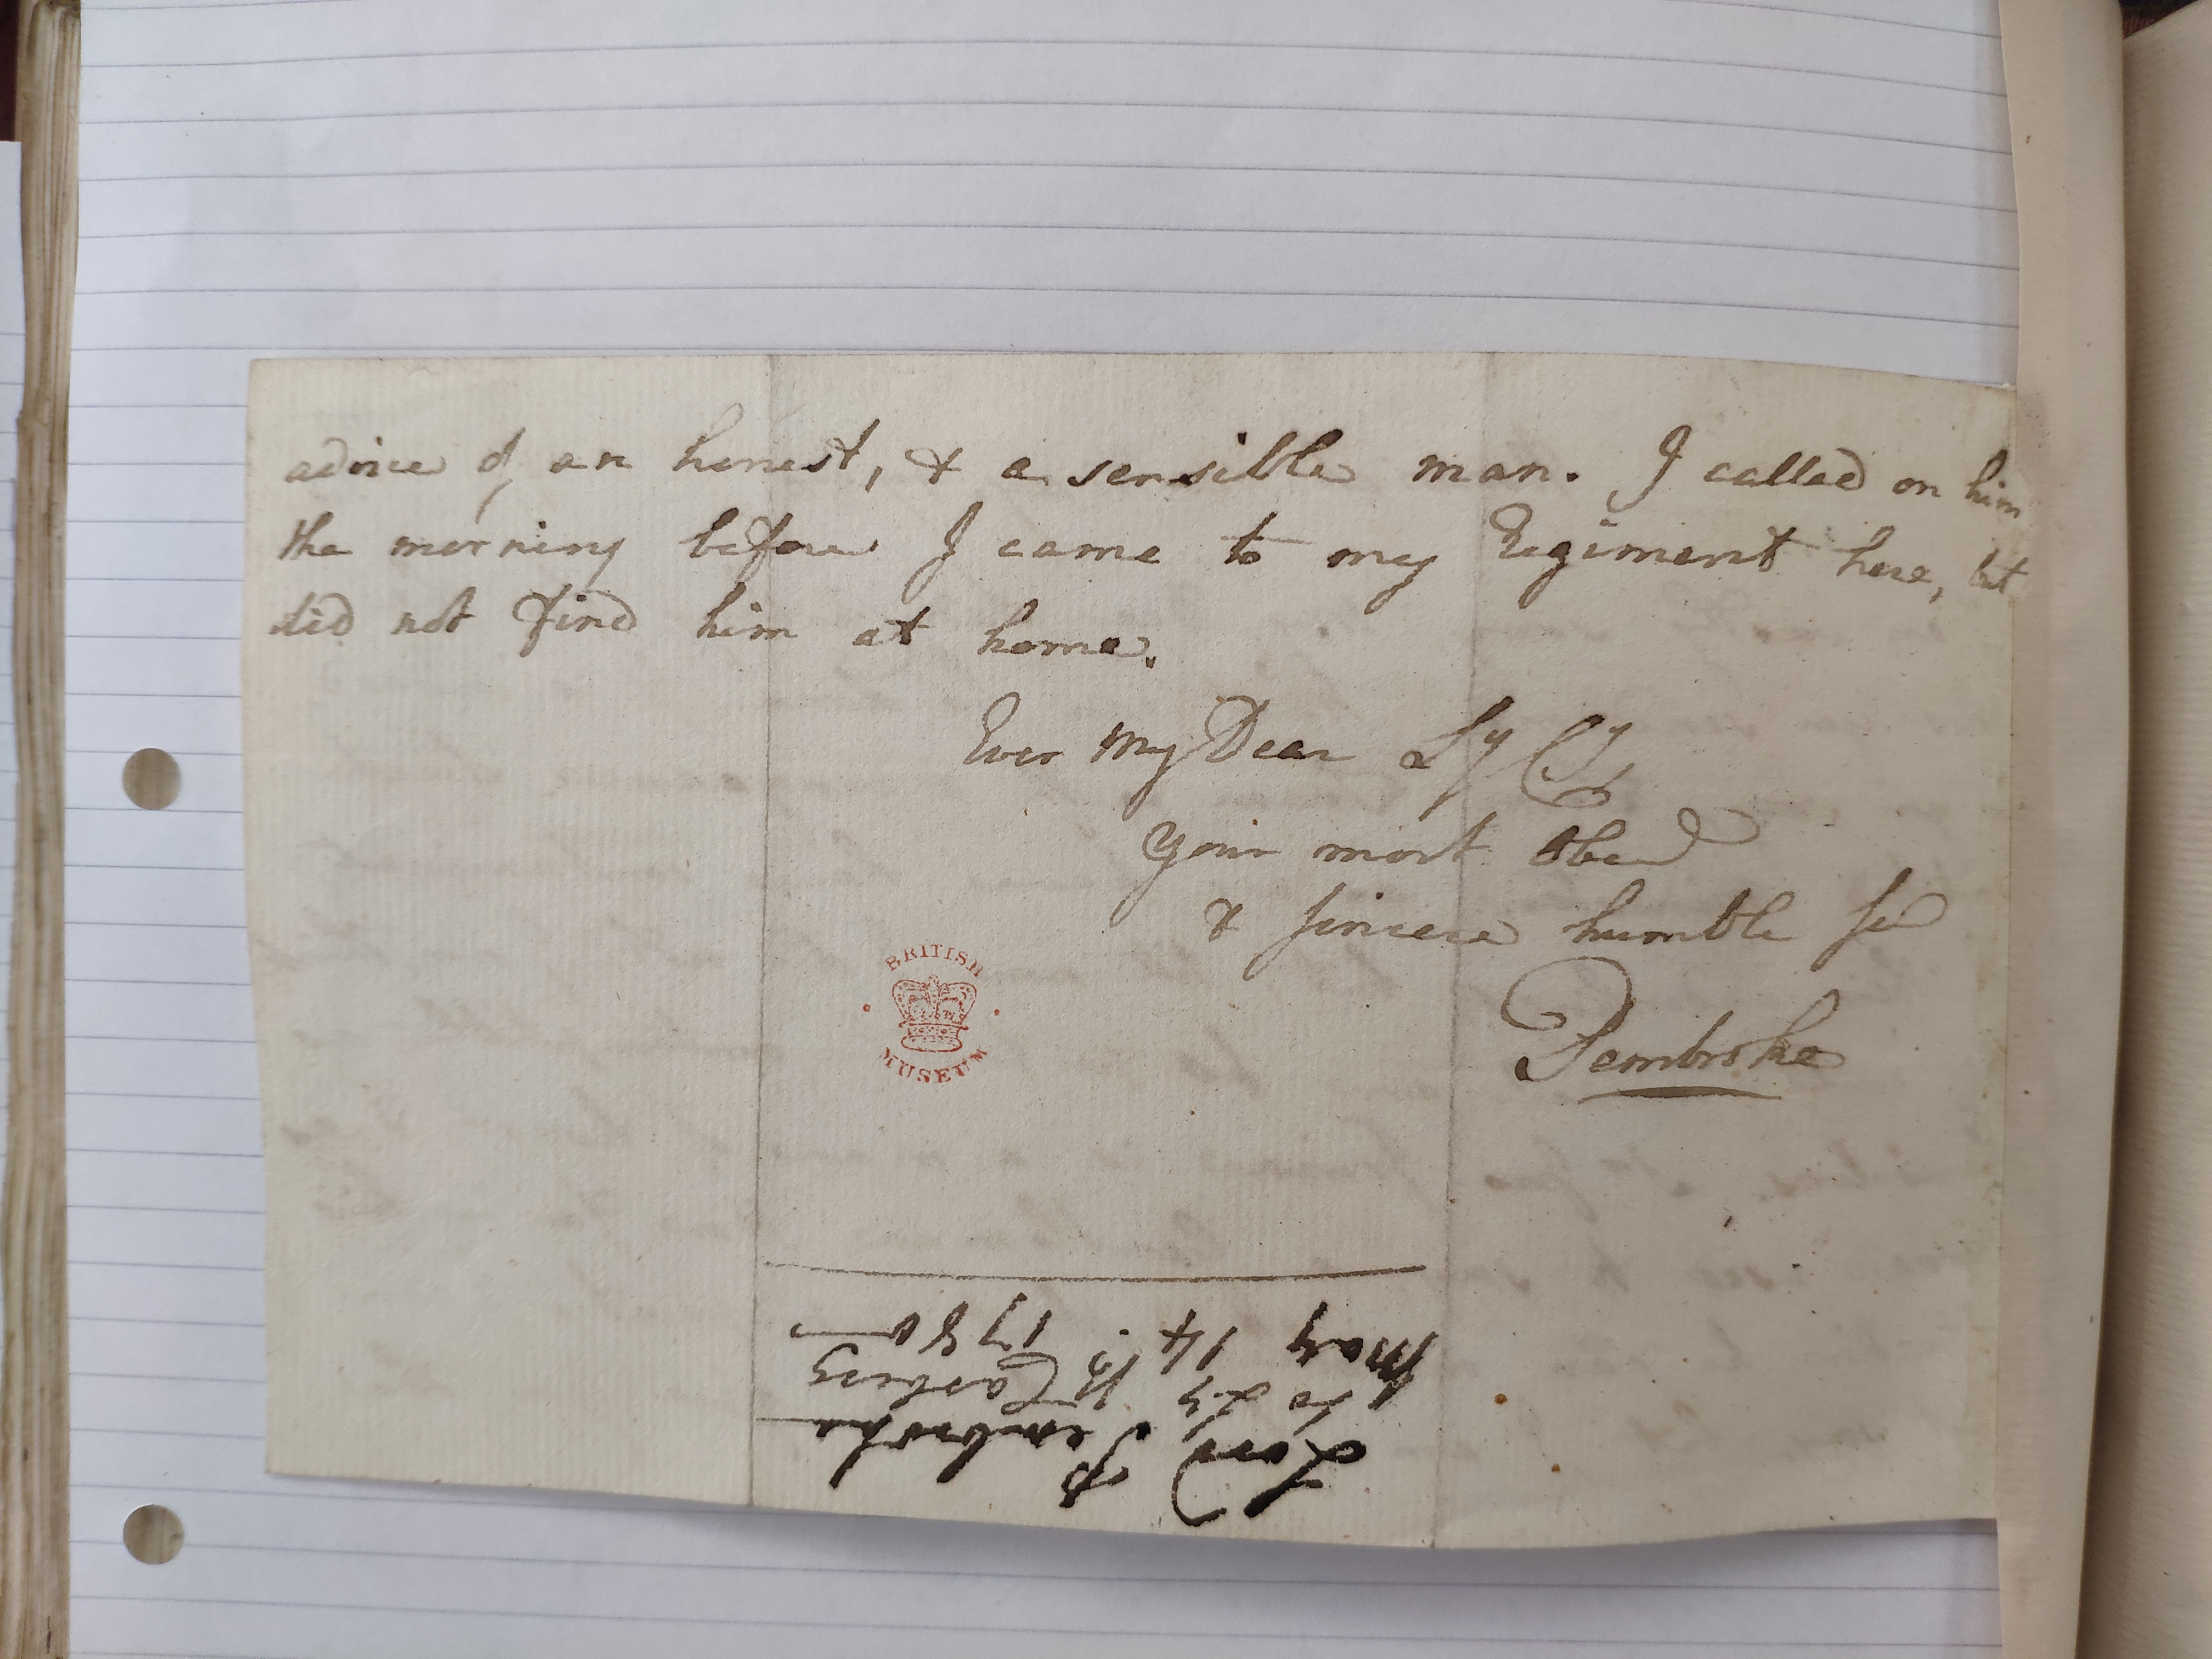 advice of an honest, & a sensible man. I called on him
the morning before I came to my Regiment here, but
did not find him at home.
Ever my Dear Ly Cy
Your most Obed
& sincere humble Se
Pembroke
BRITISH
MUSEUM
Lord Pembroke
to Ly
May 14. 1780